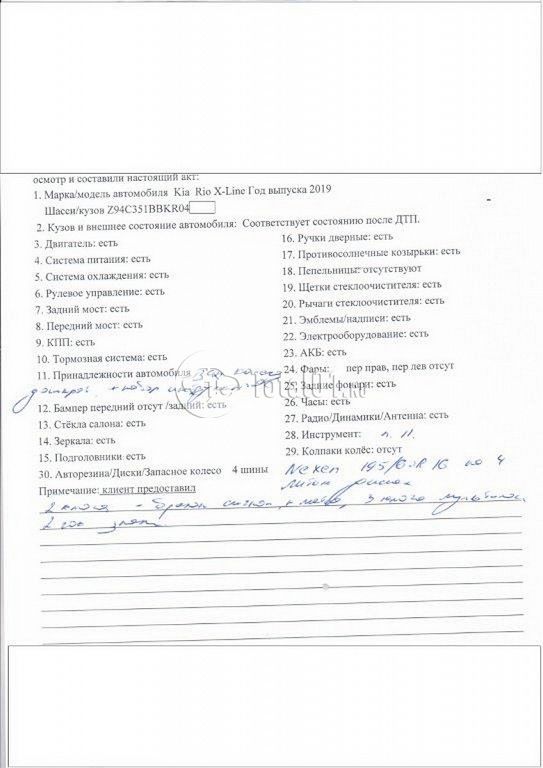 осмотр и составили настоящий акт:
1. Марка/модель автомобиля Kia Rio X-Line Год выпуска 2019
Шасси/кузов Z94C351BBKR04
2. Кузов и внешнее состояние автомобиля: Соответствует состоянию после ДТП.
3. Двигатель: есть
4. Система питания: есть
5. Система охлаждения: есть
6. Рулевое управление: есть
7. Задний мост: есть
8. Передний мост: есть
9. КПП: есть
10. Тормозная система: есть
11. Принадлежности автомобиля
домкрат + набор
12. Бампер передний отсут /задний: есть
13. Стёкла салона: есть
14. Зеркала: есть
15. Подголовники: есть
16. Ручки дверные: есть
17. Противосолнечные козырьки: есть
18. Пепельницы: отсутствуют
19. Щетки стеклоочистителя: есть
20. Рычаги стеклоочистителя: есть
21. Эмблемы/надписи: есть
22. Электрооборудование: есть
23. АКБ: есть
24. Фары: пер прав, пер лев отсут
25. Задние фонари: есть
26. Часы: есть
27. Радио/Динамики/Антенна: есть
28. Инструмент:
29. Колпаки колёс: отсут
30. Авторезина/Диски/Запасное колесо 4 шины Nexen R 16
Примечание: клиент предоставил
2 ключа
total01.ru